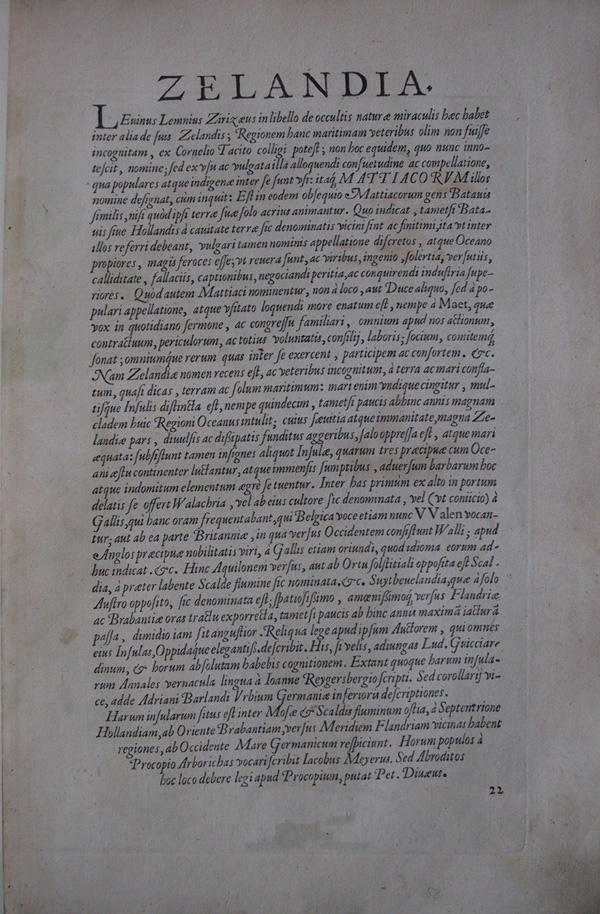 ZELANDIA.
LEuinus Lemnius Zirizæus in libello de occultis naturæ miraculis hæc habet
inter alia de suis Zelandis; Regionem hanc maritimam veteribus olim non fuisse
incognitam, ex Cornelio Tacito colligi potest; non hoc equidem, quo nunc inno-
tescit, nomine; sed ex vsu ac vulgata illa alloquendi consuetudine ac compellatione,
qua populares atque indigenæ inter se sunt vsi: itaq́; MATTIACORVM illos
nomine designat, cùm inquit: Est in eodem obsequio Mattiacorum gens Batauis
similis, nisi quòd ipsi terræ suæ solo acrius animantur. Quo indicat, tametsi Bata-
uis siue Hollandis à cauitate terræ sic denominatis vicini sint ac finitimi, ita vt inter
illos referri debeant, vulgari tamen nominis appellatione discretos, atque Oceano
propiores, magis feroces esse; vt reuera sunt, ac viribus, ingenio, solertia, versutiis,
calliditate, fallaciis, captionibus, negociandi peritia, ac conquirendi industria supe-
riores. Quòd autem Mattiaci nominentur, non à loco, aut Duce aliquo, sed à po-
pulari appellatione, atque vsitato loquendi more enatum est, nempe à Maet, quæ
vox in quotidiano sermone, ac congressu familiari, omnium apud nos actionum,
contractuum, periculorum, ac totius voluntatis, consilij, laboris; socium, comitemq́;
sonat; omniumque rerum quas inter se exercent, participem ac confortem. &c.
Nam Zelandiæ nomen recens est, ac veteribus incognitum, à terra ac mari confla-
tum, quasi dicas, terram ac solum maritimum: mari enim vndique cingitur, mul-
tisque Insulis distincta est, nempe quindecim, tametsi paucis abhinc annis magnam
cladem huic Regioni Oceanus intulit; cuius sæuitia atque immanitate, magna Ze-
landiæ pars, diuulsis ac dissipatis funditus aggeribus, salo oppressa est, atque mari
æquata: subsistunt tamen insignes aliquot Insulæ, quarum tres præcipuæ cum Oce-
ani æstu continenter luctantur, atque immensis sumptibus, aduersum barbarum hoc
atque indomitum elementum ægrè se tuentur. Inter has primum ex alto in portum
delatis se offert Walachria, vel ab eius cultore sic denominata, vel (vt coniicio) à
Gallis, qui hanc oram frequentabant, qui Belgica voce etiam nunc VValen vocan-
tur; aut ab ea parte Britanniæ, in qua versus Occidentem consistunt Walli; apud
Anglos præcipuæ nobilitatis viri, à Gallis etiam oriundi, quod idioma eorum ad-
huc indicat. &c. Hinc Aquilonem versus, aut ab Ortu solstitiali opposita est Scal-
dia, à præter labente Scalde flumine sic nominata. &c. Suytbeuelandia, quæ à solo
Austro opposito, sic denominata est; spatiosissimo, amœnissimoq́; versus Flandriæ
ac Brabantiæ oras tractu exporrecta, tametsi paucis ab hinc annis maximâ iacturâ
passa, dimidio iam sit angustior. Reliqua lege apud ipsum Auctorem, qui omnes
eius Insulas, Oppidaque elegantiss. describit. His, si velis, adiungas Lud. Guicciar-
dinum, & horum absolutam habebis cognitionem. Extant quoque harum insula-
rum Annales vernacula lingua à Ioanne Reygersbergio scripti. Sed corollarij vi-
ce, adde Adriani Barlandi Vrbium Germaniæ inferioris descriptiones.
Harum insularum situs est inter Mosæ & Scaldis fluminum ostia, à Septentrione
Hollandiam, ab Oriente Brabantiam, versus Meridiem Flandriam vicinas habent
regiones, ab Occidente Mare Germanicum respiciunt. Horum populos à
Procopio Arborichas vocari scribit Iacobus Meyerus. Sed Abroditos
hoc loco debere legi apud Procopium, putat Pet. Diuæus.
22